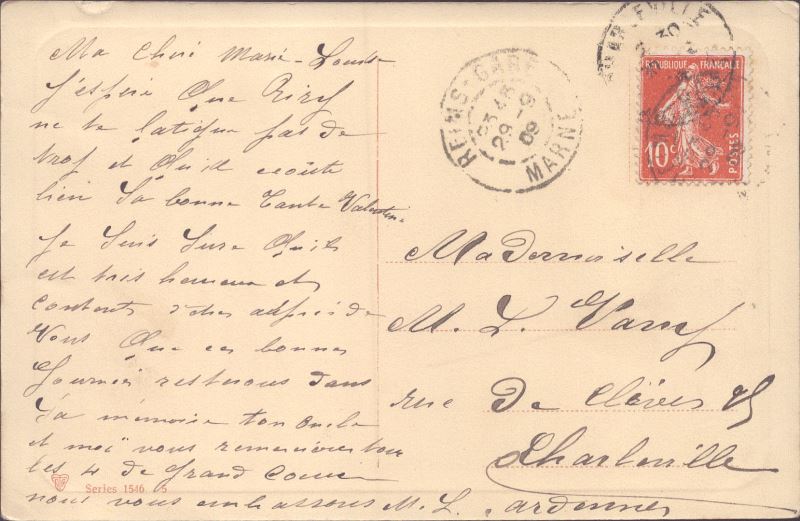 Ma Chère Marie-Louise
J'espère Que
ne te fatigue pas de
trop et Qu'il écoute
bien Sa bonne Tante Valentine
Je Suis Sure Qu'ils
est très heureux et
contents d'être auprès de
Vous Que ces bonnes
Journées restrons dans
Sa mémoire ton oncle
et moi vous remercions
les 4 de Grand Coeur
nous vous embrassons M. L.
Series 1546 5
REIMS-GARE
23 45
29 -9
09
MARNE
REPUBLIQUE FRANÇAISE
10c
POSTES
Mademoiselle
M. L.
rue De Clèves
Charleville
ardennes